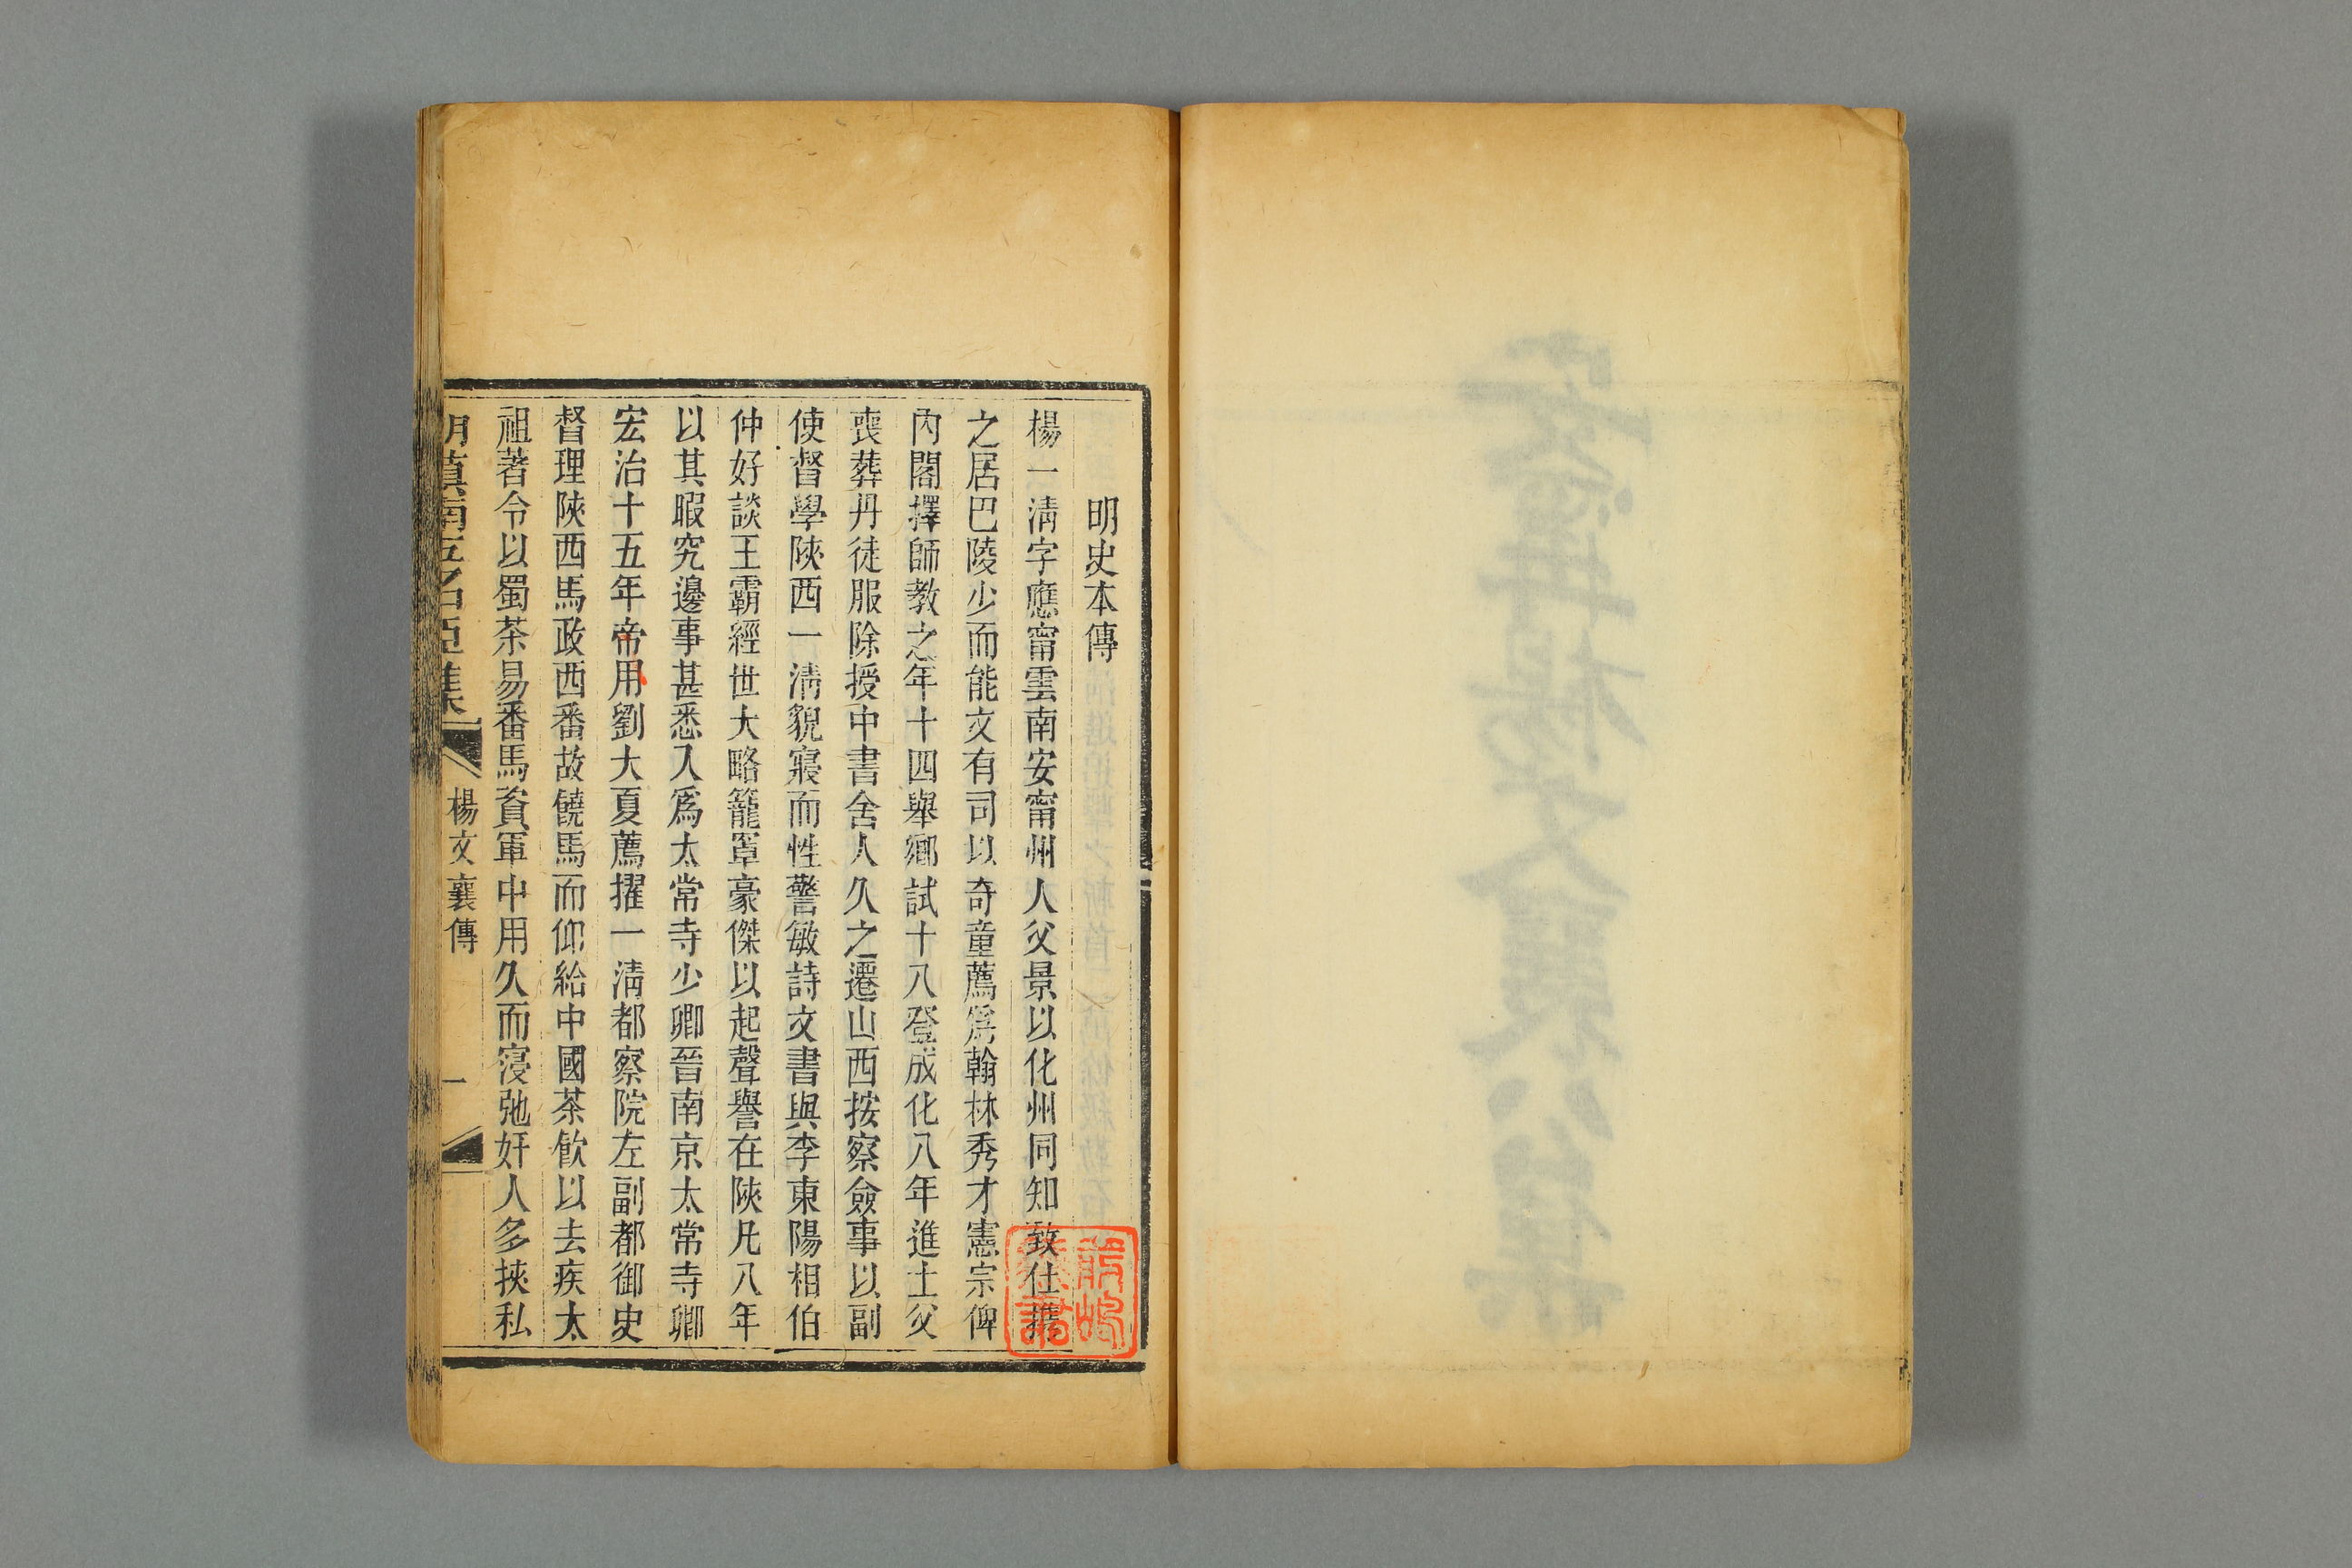 明史本傳
楊一淸字應甯雲南安甯州人父景以化州同知致仕攜
之居巴陵少而能文有司以奇童薦爲翰林秀才憲宗俾
內閣擇師教之年十四舉鄉試十八登成化八年進士父
喪葬丹徒服除授中書舍人久之遷山西按察僉事以副
使督學陝西一淸貌寢而性警敏詩文書與李東陽相伯
仲好談王霸經世大略籠罩豪傑以起聲譽在陝凡八年
以其暇究邊事甚悉入爲太常寺少卿晉南京太常寺卿
宏治十五年帝用劉大夏薦擢一淸都察院左副都御史
督理陝西馬政西番故饒馬而仰給中國茶飮以去疾太
祖著令以蜀茶易番馬資軍中用久而寖弛奸人多挾私
明滇南五名臣集
楊文襄傳
一